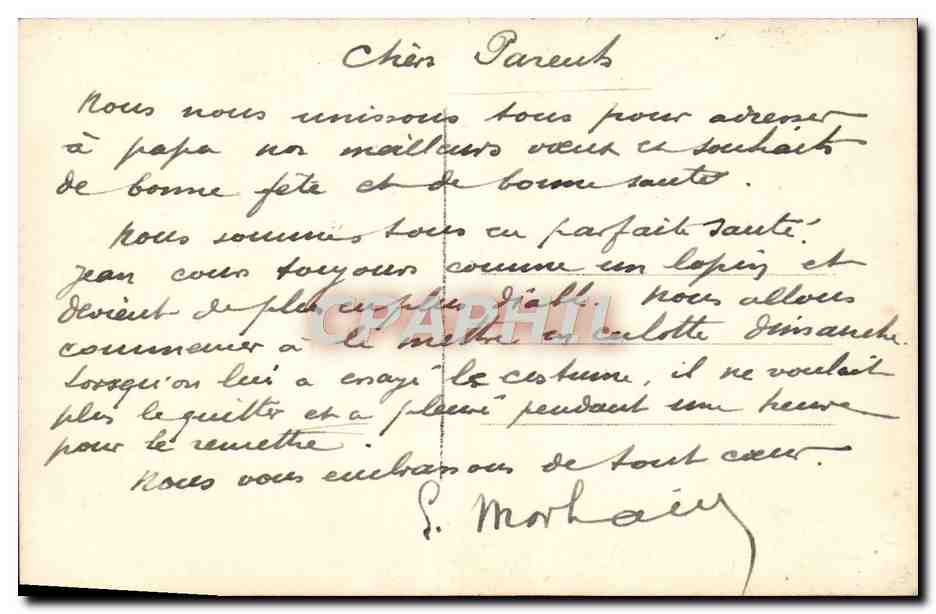 Chers Parents
Nous nous unissons tous pour adresser
à papa nos meilleurs vœux et souhaits
de bonne fête et de bonne santé.
Nous sommes tous en parfaite santé.
Jean cour toujours comme un lapin et
devient de plus en plus diable. Nous allons
commencer à le mettre en culotte dimanche.
Lorsqu'on lui a essayé le costume, il ne voulait
plus le quitter et a pleuré pendant une heure
pour le remettre.
Nous vous embrassons de tout cœur.
Morhain
CPAPHIL